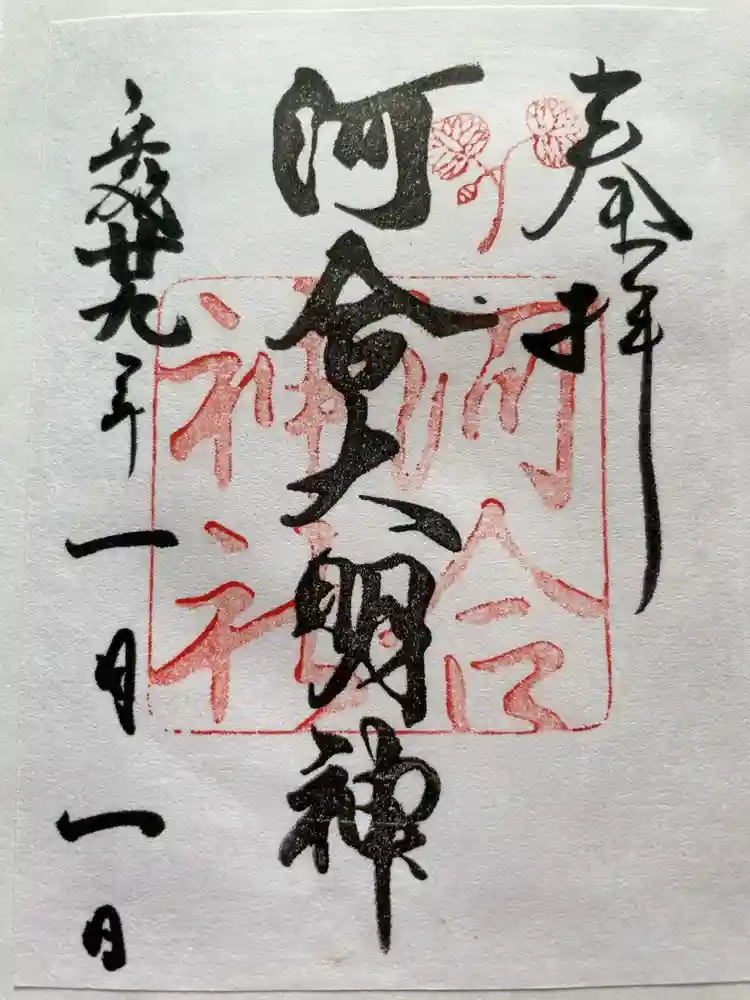 奉拝
河合大明神
河合神社
平成廿九年一月一日